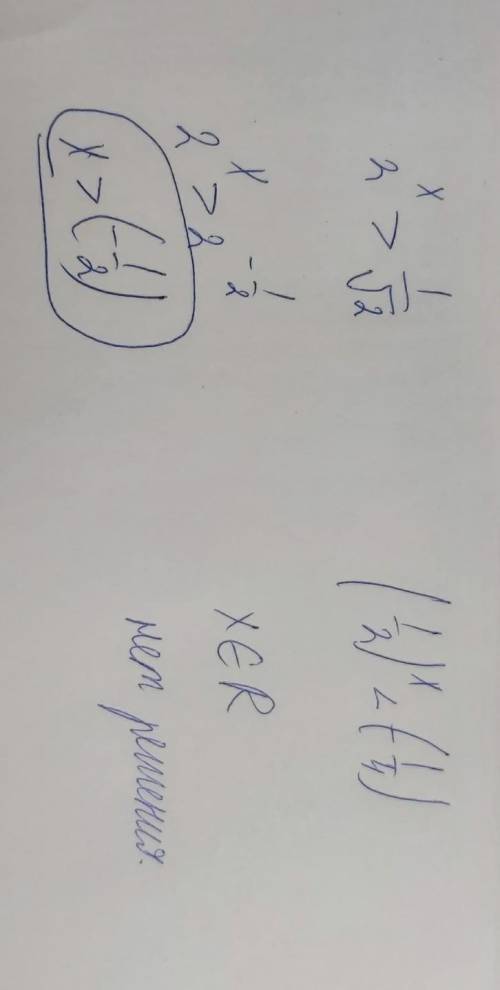 2^x > 1/√2
2^x > 2^(-1/2)
x > (-1/2)
(1/2)^x < (-1/4)
x ∈ R
нет решения.